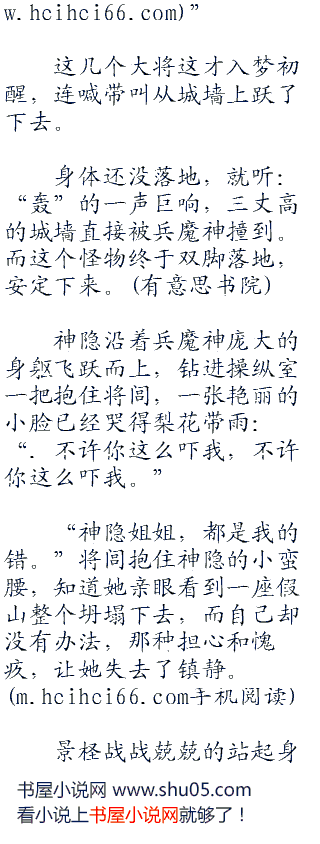 w.hcihci66.com)”
这几个大将这才入梦初
醒，连喊带叫从城墙上跃了
下去。
身体还没落地，就听：
“轰”的一声巨响，三丈高
的城墙直接被兵魔神撞到。
而这个怪物终于双脚落地，
安定下来。(有意思书院)
神隐沿着兵魔神庞大的
身躯飞跃而上，钻进操纵室
一把抱住将闾，一张艳丽的
小脸已经哭得梨花带雨：
“．不许你这么吓我，不许
你这么吓我。”
“神隐姐姐，都是我的
错。”将闾抱住神隐的小蛮
腰，知道她亲眼看到一座假
山整个坍塌下去，而自己却
没有办法，那种担心和愧
疚，让她失去了镇静。
(m.hcihci66.com手机阅读)
景柽战战兢兢的站起身
书屋小说网 www.shu05.com
看小说上书屋小说网就够了！